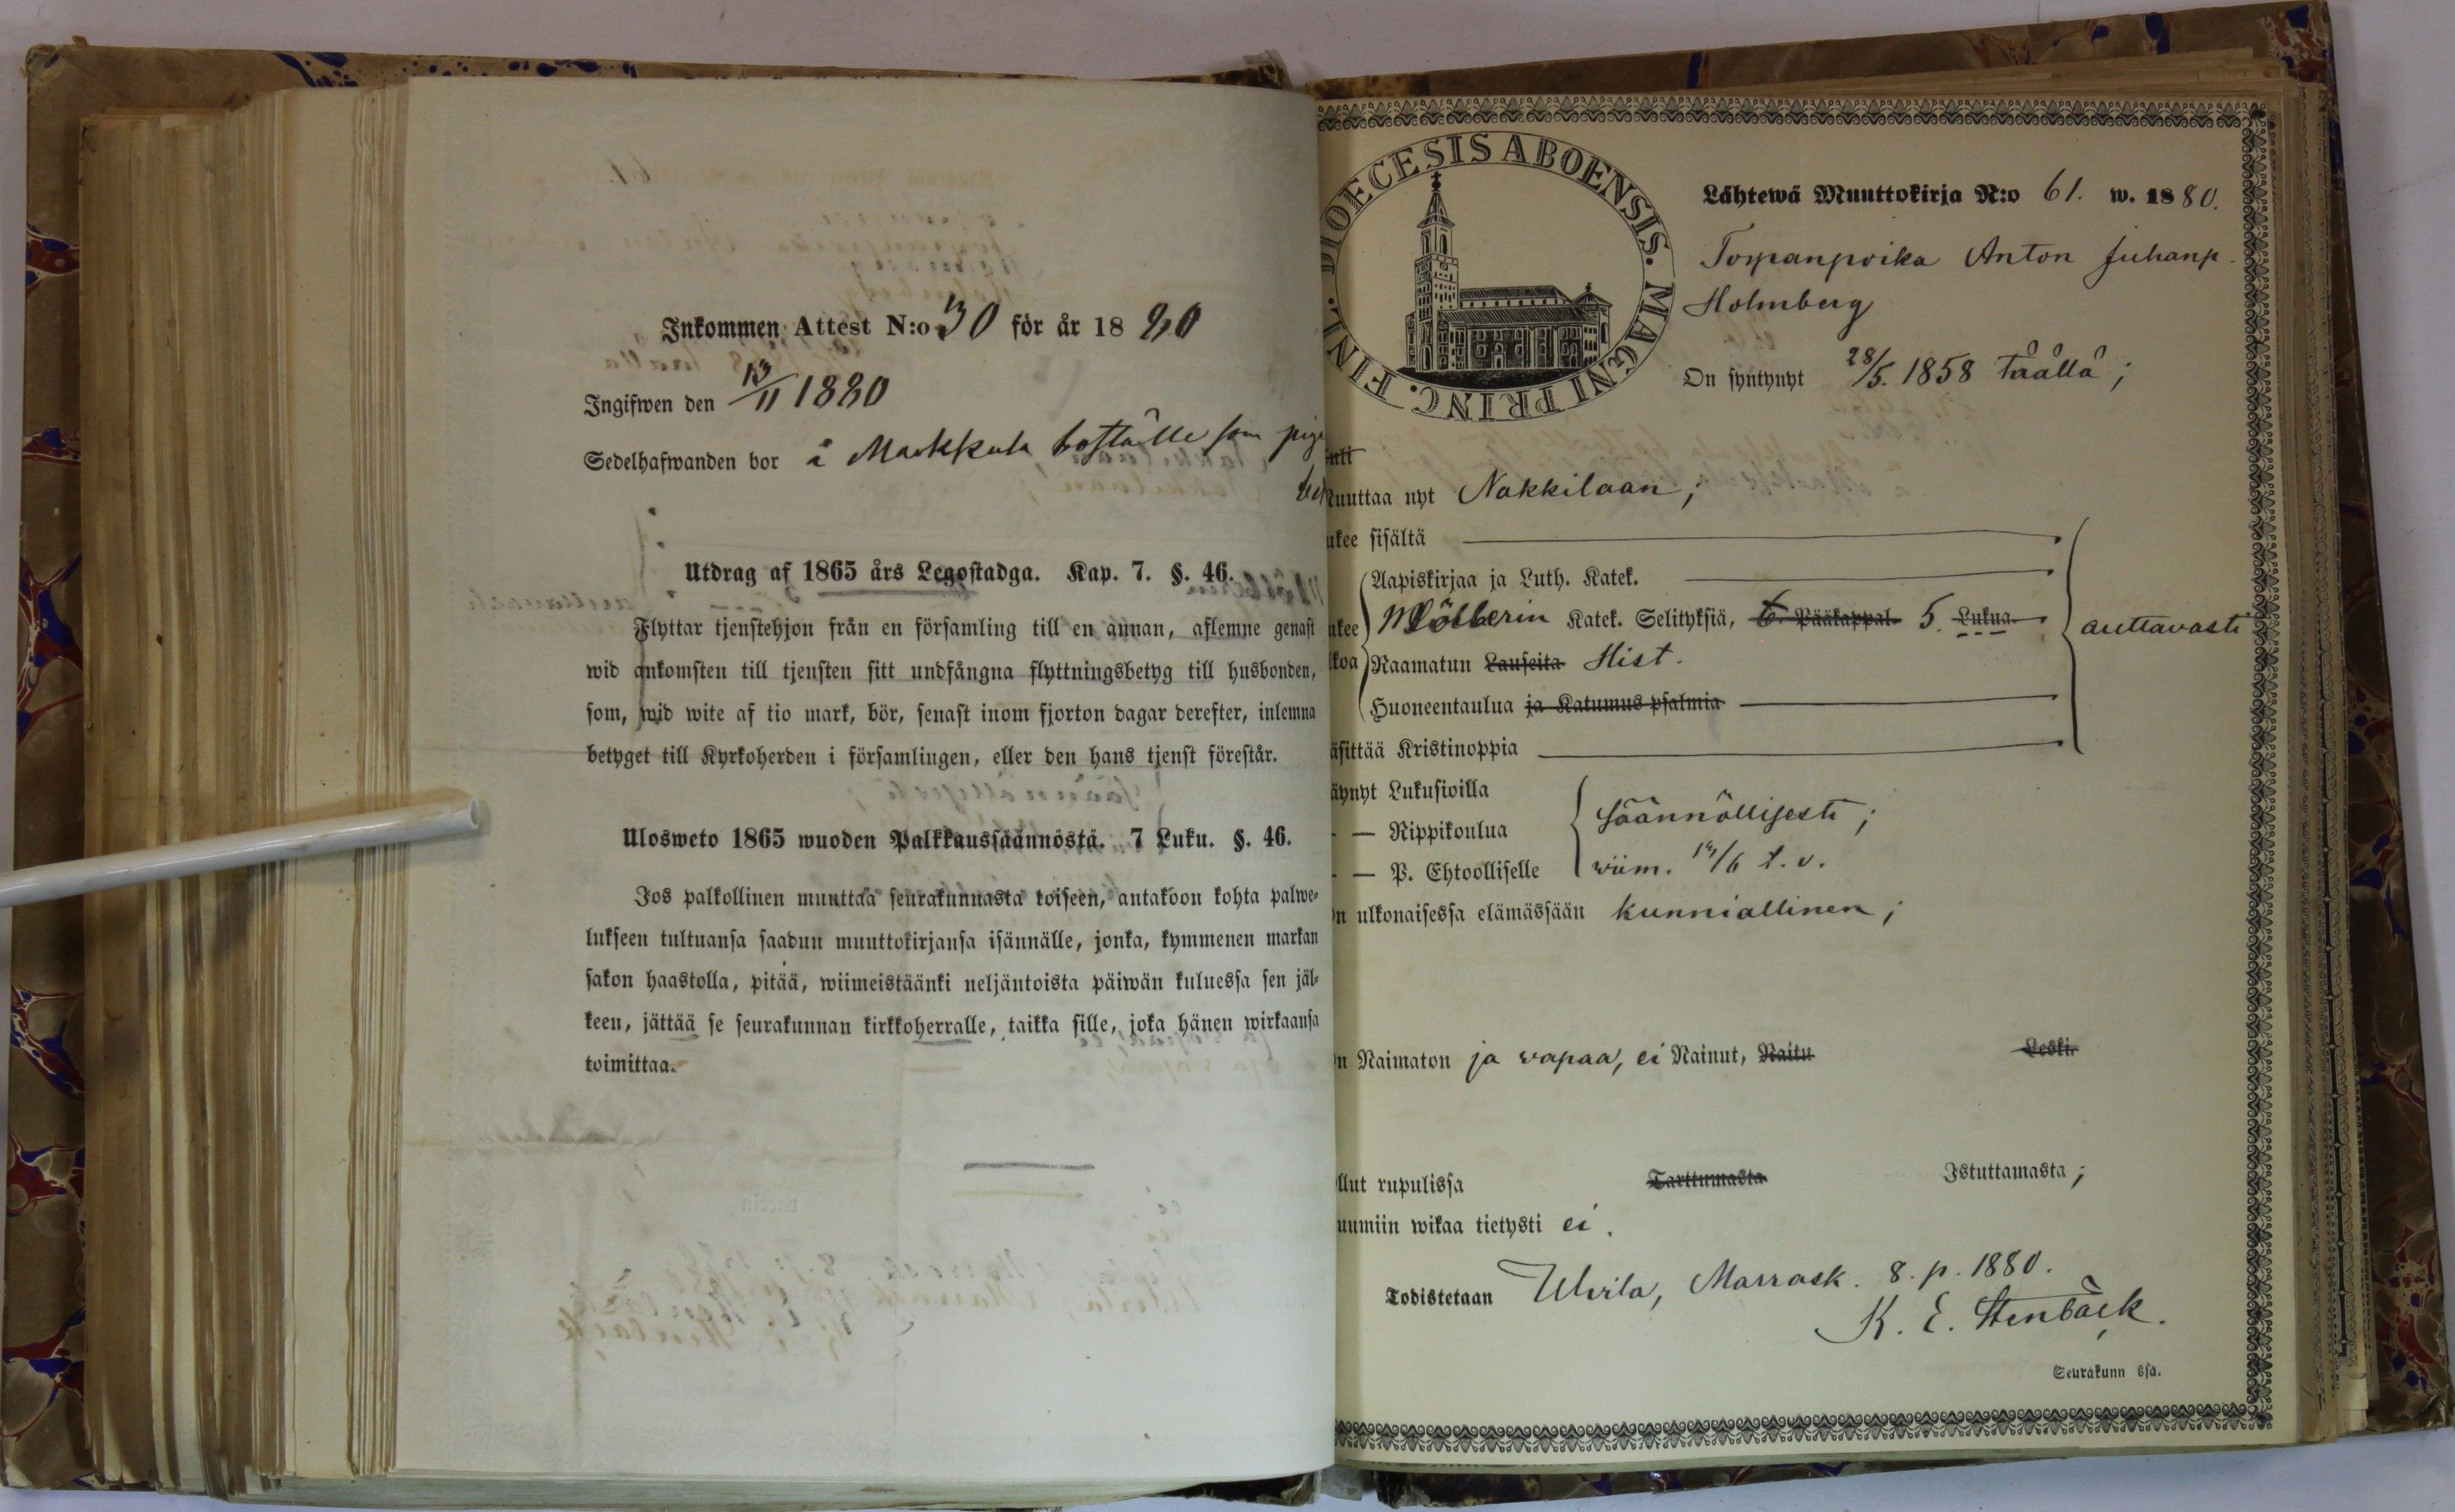 Inkommen Attest N:o 30 för år 1880
Ingifwen den 13/11 1880
Sedelhafwanden bor å Markkula boställe som pig
Utdrag af 1865 års Legostadga. Kap. 7. §. 46.
Flyttar tjenstehjon från en församling till en annan, aflemne genast
wid ankomsten till tjensten sitt undfångna flyttningsbetyg till husbonden,
som, wid wite af tio mark, bör, senast inom fjorton dagar derefter, inlemna
betyget till Kyrkoherden i församlingen, eller den hans tjenst förestår.
Ulosweto 1865 wuoden Palkkaussäännöstä. 7 Luku. §. 46.
Jos palkollinen muuttaa seurakunnasta toiseen, antakoon kohta palwe-
lukseen tultuansa saadun muuttokirjansa isännälle, jonka, kymmenen markan
sakon haastolla, pitää, wiimeistäänki neljäntoista päiwän kuluessa sen jäl-
keen, jättää se seurakunnan kirkkoherralle, taikka sille, joka hänen wirkaansa
toimittaa.
DIOECESIS ABOENSIS. MAGNI PRINC. FINL.
Lähtewä Muuttokirja N:o 61. w. 1880.
Torpanpoika Anton Juhanp.
Holmberg
On syntynyt 28/5. 1858 täällä;
uuttaa nyt Nakkilaan;
ukee sisältä
Aapiskirjaa ja Luth. Katek.
ukee Möllerin Katek. Selityksiä, 6. Pääkappal. 5. Lukua. auttavasti
lkoa Raamatun Lauseita Hist.
Huoneentaulua ja Katumus psalmia
äsittää Kristinoppia
äynyt Lukusioilla
— Rippikoulua säännöllisesti;
— P. Ehtoolliselle wiim. /6 t. v.
n ulkonaisessa elämässään kunniallinen;
n Naimaton ja vapaa, ei Nainut, Naitu Leski.
llut rupulissa Tarttumasta Istuttamasta;
uumiin wikaa tietysti ei.
Todistetaan Ulvila, Marrask. 8. p. 1880.
K. E. Stenbäck.
Seurakunn ssa.